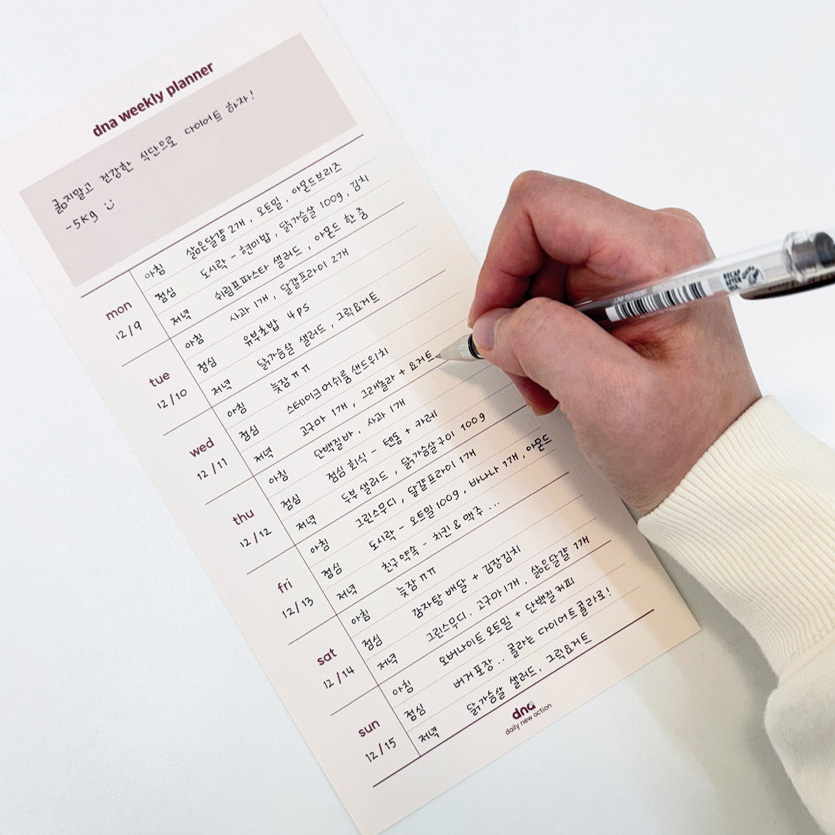 dna weekly planner
굶지말고 건강한 식단으로 다이어트 하자!
-5kg
mon 12/9
아침 삶은달걀 2개, 오트밀, 아몬드브리즈
점심 도시락 - 현미밥, 닭가슴살 100g, 김치
저녁 쉬림프파스타 샐러드, 아몬드 한 줌
tue 12/10
아침 사과 1개, 달걀프라이 2개
점심 유부초밥 4ps
저녁 닭가슴살 샐러드, 그릭요거트
wed 12/11
아침 늦장 ㅠㅠ
점심 스테이크 머쉬룸 샌드위치
저녁 고구마 1개, 그래놀라 + 요거트
thu 12/12
아침 단백질바, 사과 1개
점심 점심 회식 - 텐동 + 카레
저녁 두부 샐러드, 닭가슴살구이 100g
fri 12/13
아침 그린스무디, 달걀프라이 1개
점심 도시락 - 오트밀 100g, 바나나 1개, 아몬드
저녁 친구약쏙 - 치킨 & 맥주 ...
sat 12/14
아침 늦장 ㅠㅠ
점심 감자탕 배달 + 김장김치
저녁 그린스무디, 고구마 1개, 삶은달걀 1개
sun 12/15
아침 오버나이트 오트밀 + 단백질커피
점심 버거 포장.. 콜라는 다이어트콜라로!
저녁 닭가슴살 샐러드, 그릭요거트
dna
daily new action